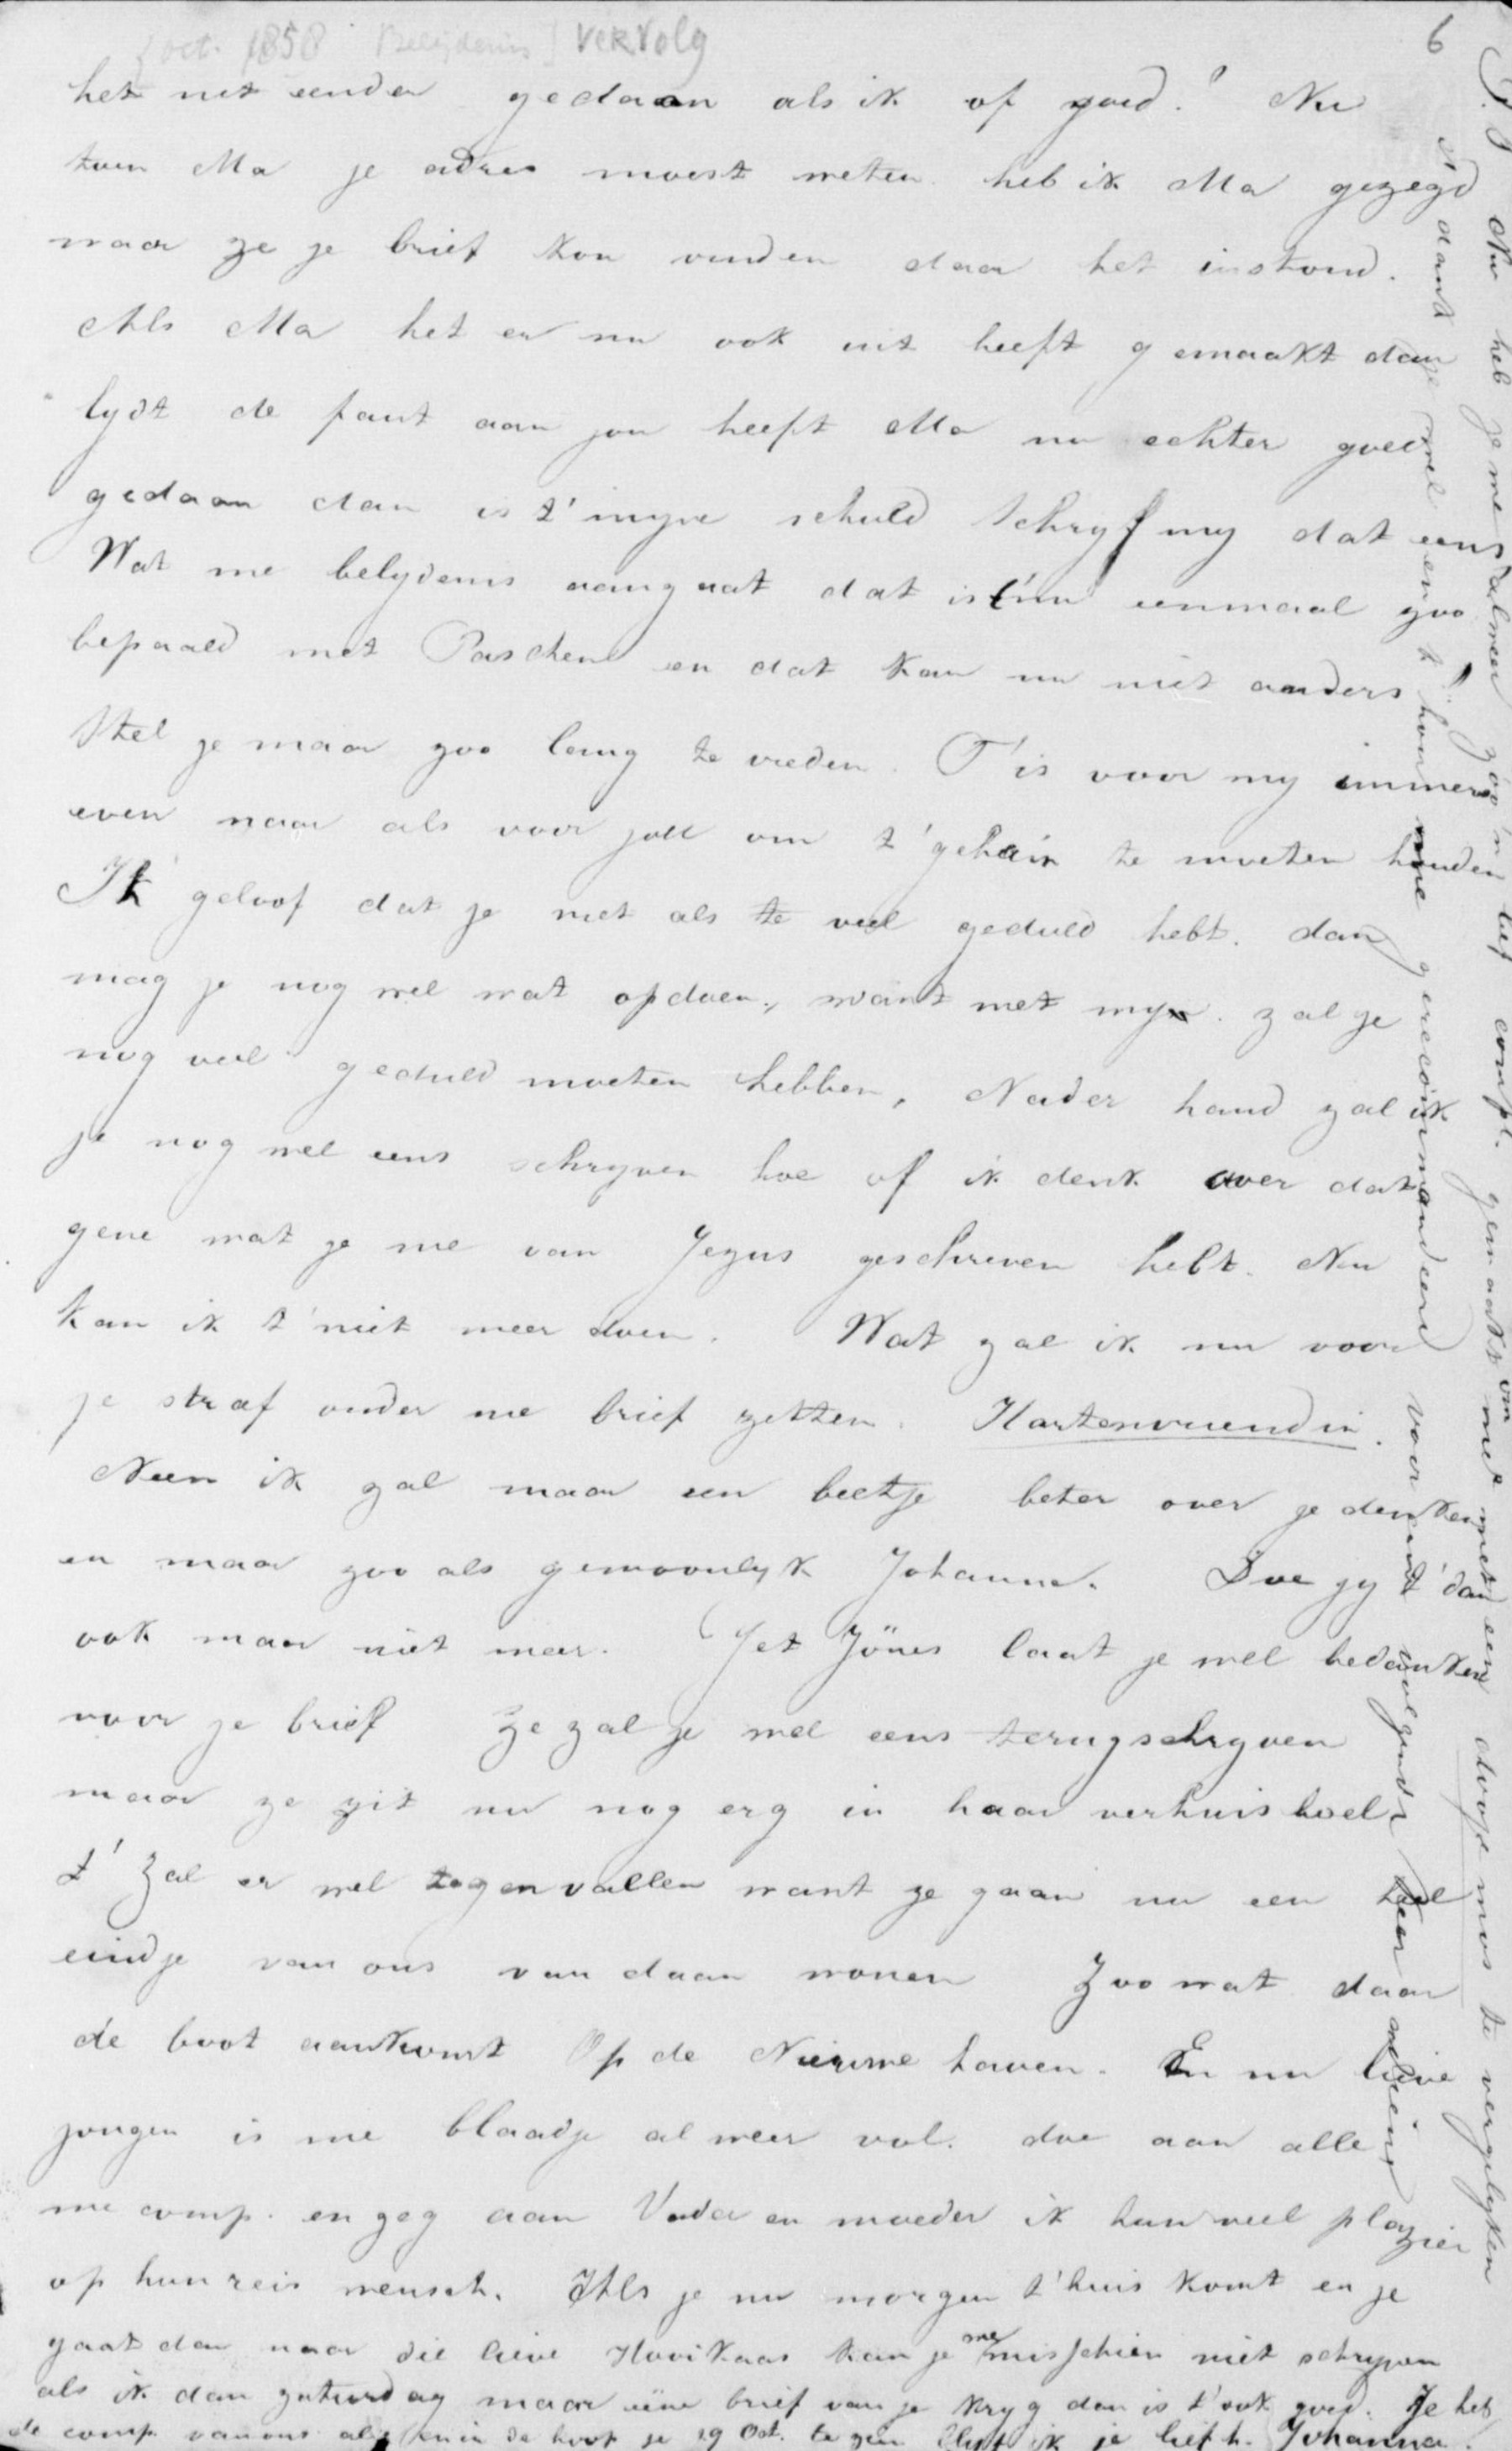 [oct. 1858 Belijdenis] vervolg
6
het net eender gedaan als ik of goed? Nu
toen Ma je adres moest weten heb ik Ma gezegd
waar ze je brief kon vinden daar het instond.
Als Ma het er nu ook uit heeft gemaakt dan
lydt de faut aan jou heeft Ma nu echter goed
gedaan dan is t' myne schuld Schryf my dat eens
Wat me belydenis aangaat dat is t' nu eenmaal zoo
bepaald met Paschen en dat kan nu niet anders
Stel je maar zoo lang te vreden. T' is voor my immers
even naar als voor jou om t' geheim te moeten houden
Ik geloof dat je niet als te veel geduld hebt. dan
mag je nog wel wat opdoen, want met myn zal je
nog veel geduld moeten hebben, Nader hand zal ik
je nog wel eens schryven hoe of ik denk over dat
gene wat je me van Jezus geschreven hebt. Nu
kan ik t' niet meer doen. Wat zal ik nu voor
je straf onder me brief zetten. Hartenvriendin.
Neen ik zal maar een beetje beter over je denken
en maar zoo als gewoonlyk Johanna. Doe jy t' dan
ook maar niet meer. Jet Jönes laat je wel bedanken
voor je brief Ze zal je wel eens terugschryven
maar ze zit nu nog erg in haar verhuisboel
t' Zal er wel tegenvallen want ze gaan nu een heel
eindje van ons van daan wonen Zoo wat daar
de boot aankomt Op de Nieuwe haven. En nu lieve
jongen is me blaadje al weer vol. doe aan alle
me comp. en zeg aan Vader en moeder ik hun veel plazier
op hun reis wensch. Als je nu morgen t'huis komt en je
gaat dan naar die lieve kan je me misschien niet schryven
als ik dan zaturdag maar eene brief van je kryg dan is t' ook goed. Je heb
de comp van ons en in de hoop je 29 Oct. te zien blyf ik je liefh. Johanna.
Nu heb je me alweer zoo'n lief compl. gemaakt om me met een doosje mos te vergelyken
dank je wel en k' hou me gerecommandeerd voor t' volgende